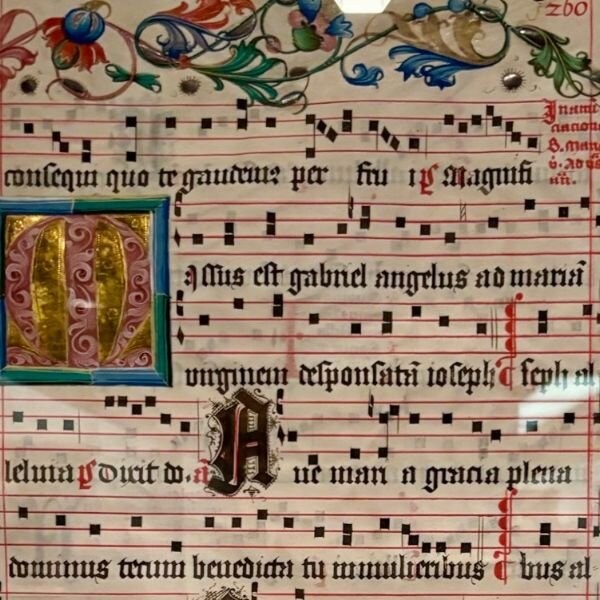 consequi quo te gaudem9 per fru i ps Magnifi
In annu
ciacion
B. mar
MIssus est gabriel angelus ad mariā
virginem desponsatā ioseph seph al
leluia ps Dixit do. a Aue mari a gracia plena
dominus tecum benedicta tu in mulieribus bus al